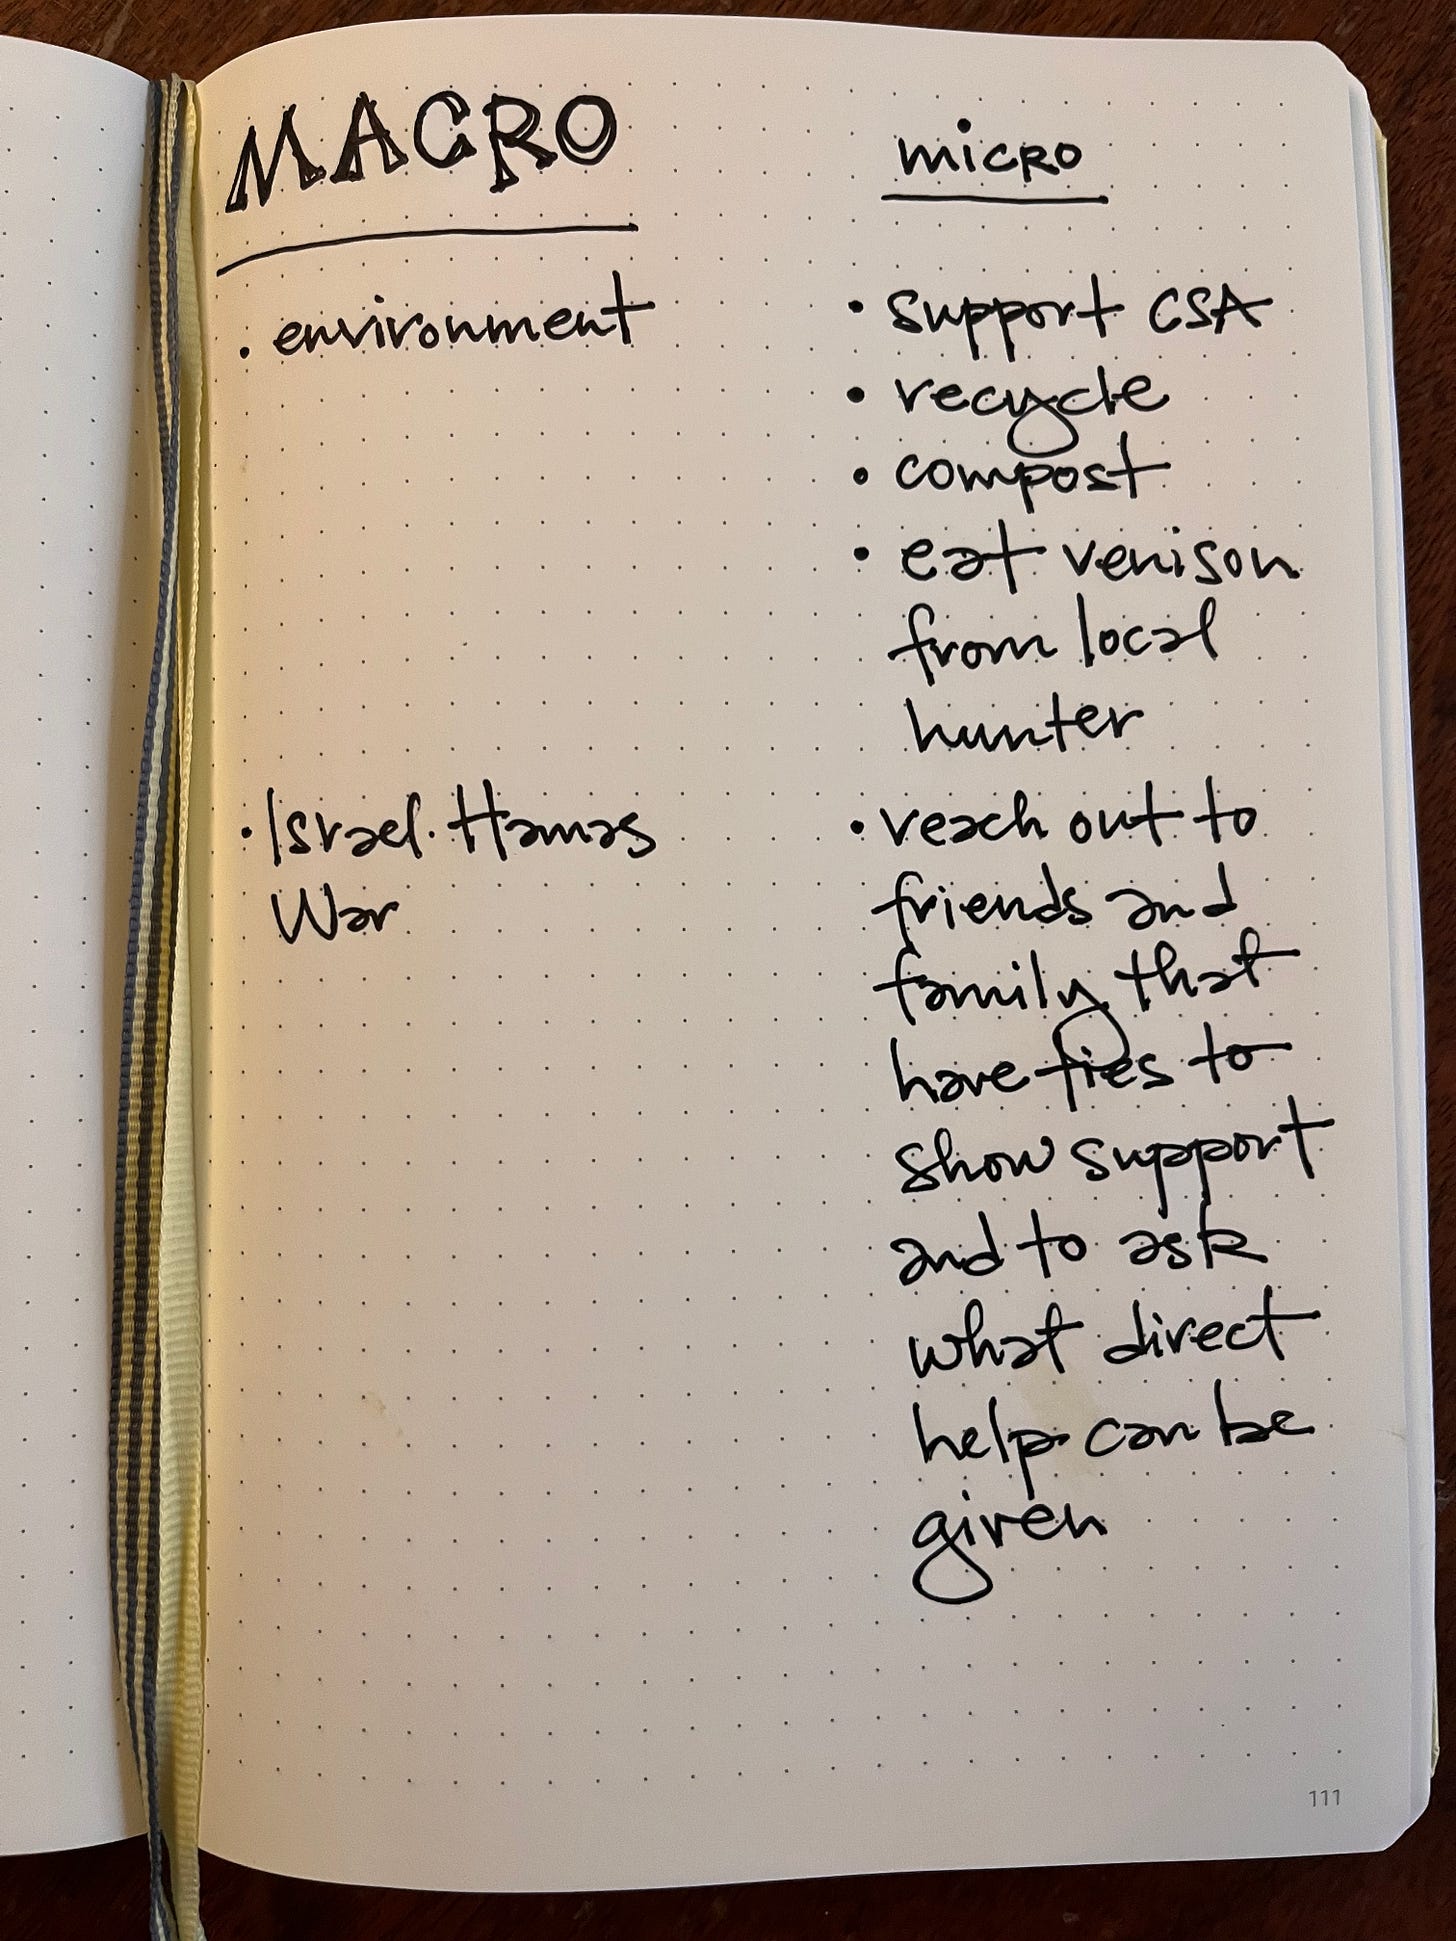 MACRO
micro
• environment
• support CSA
• recycle
• compost
• eat venison
from local
hunter
• Israel-Hamas
War
• reach out to
friends and
family that
have ties to
show support
and to ask
what direct
help can be
given
111